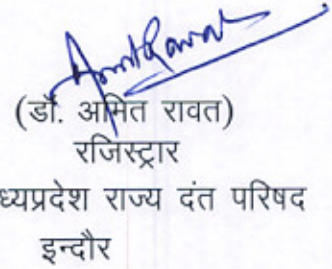 Amit Rawat
(डॉ. अमित रावत)
रजिस्ट्रार
ध्यप्रदेश राज्य दंत परिषद
इन्दौर